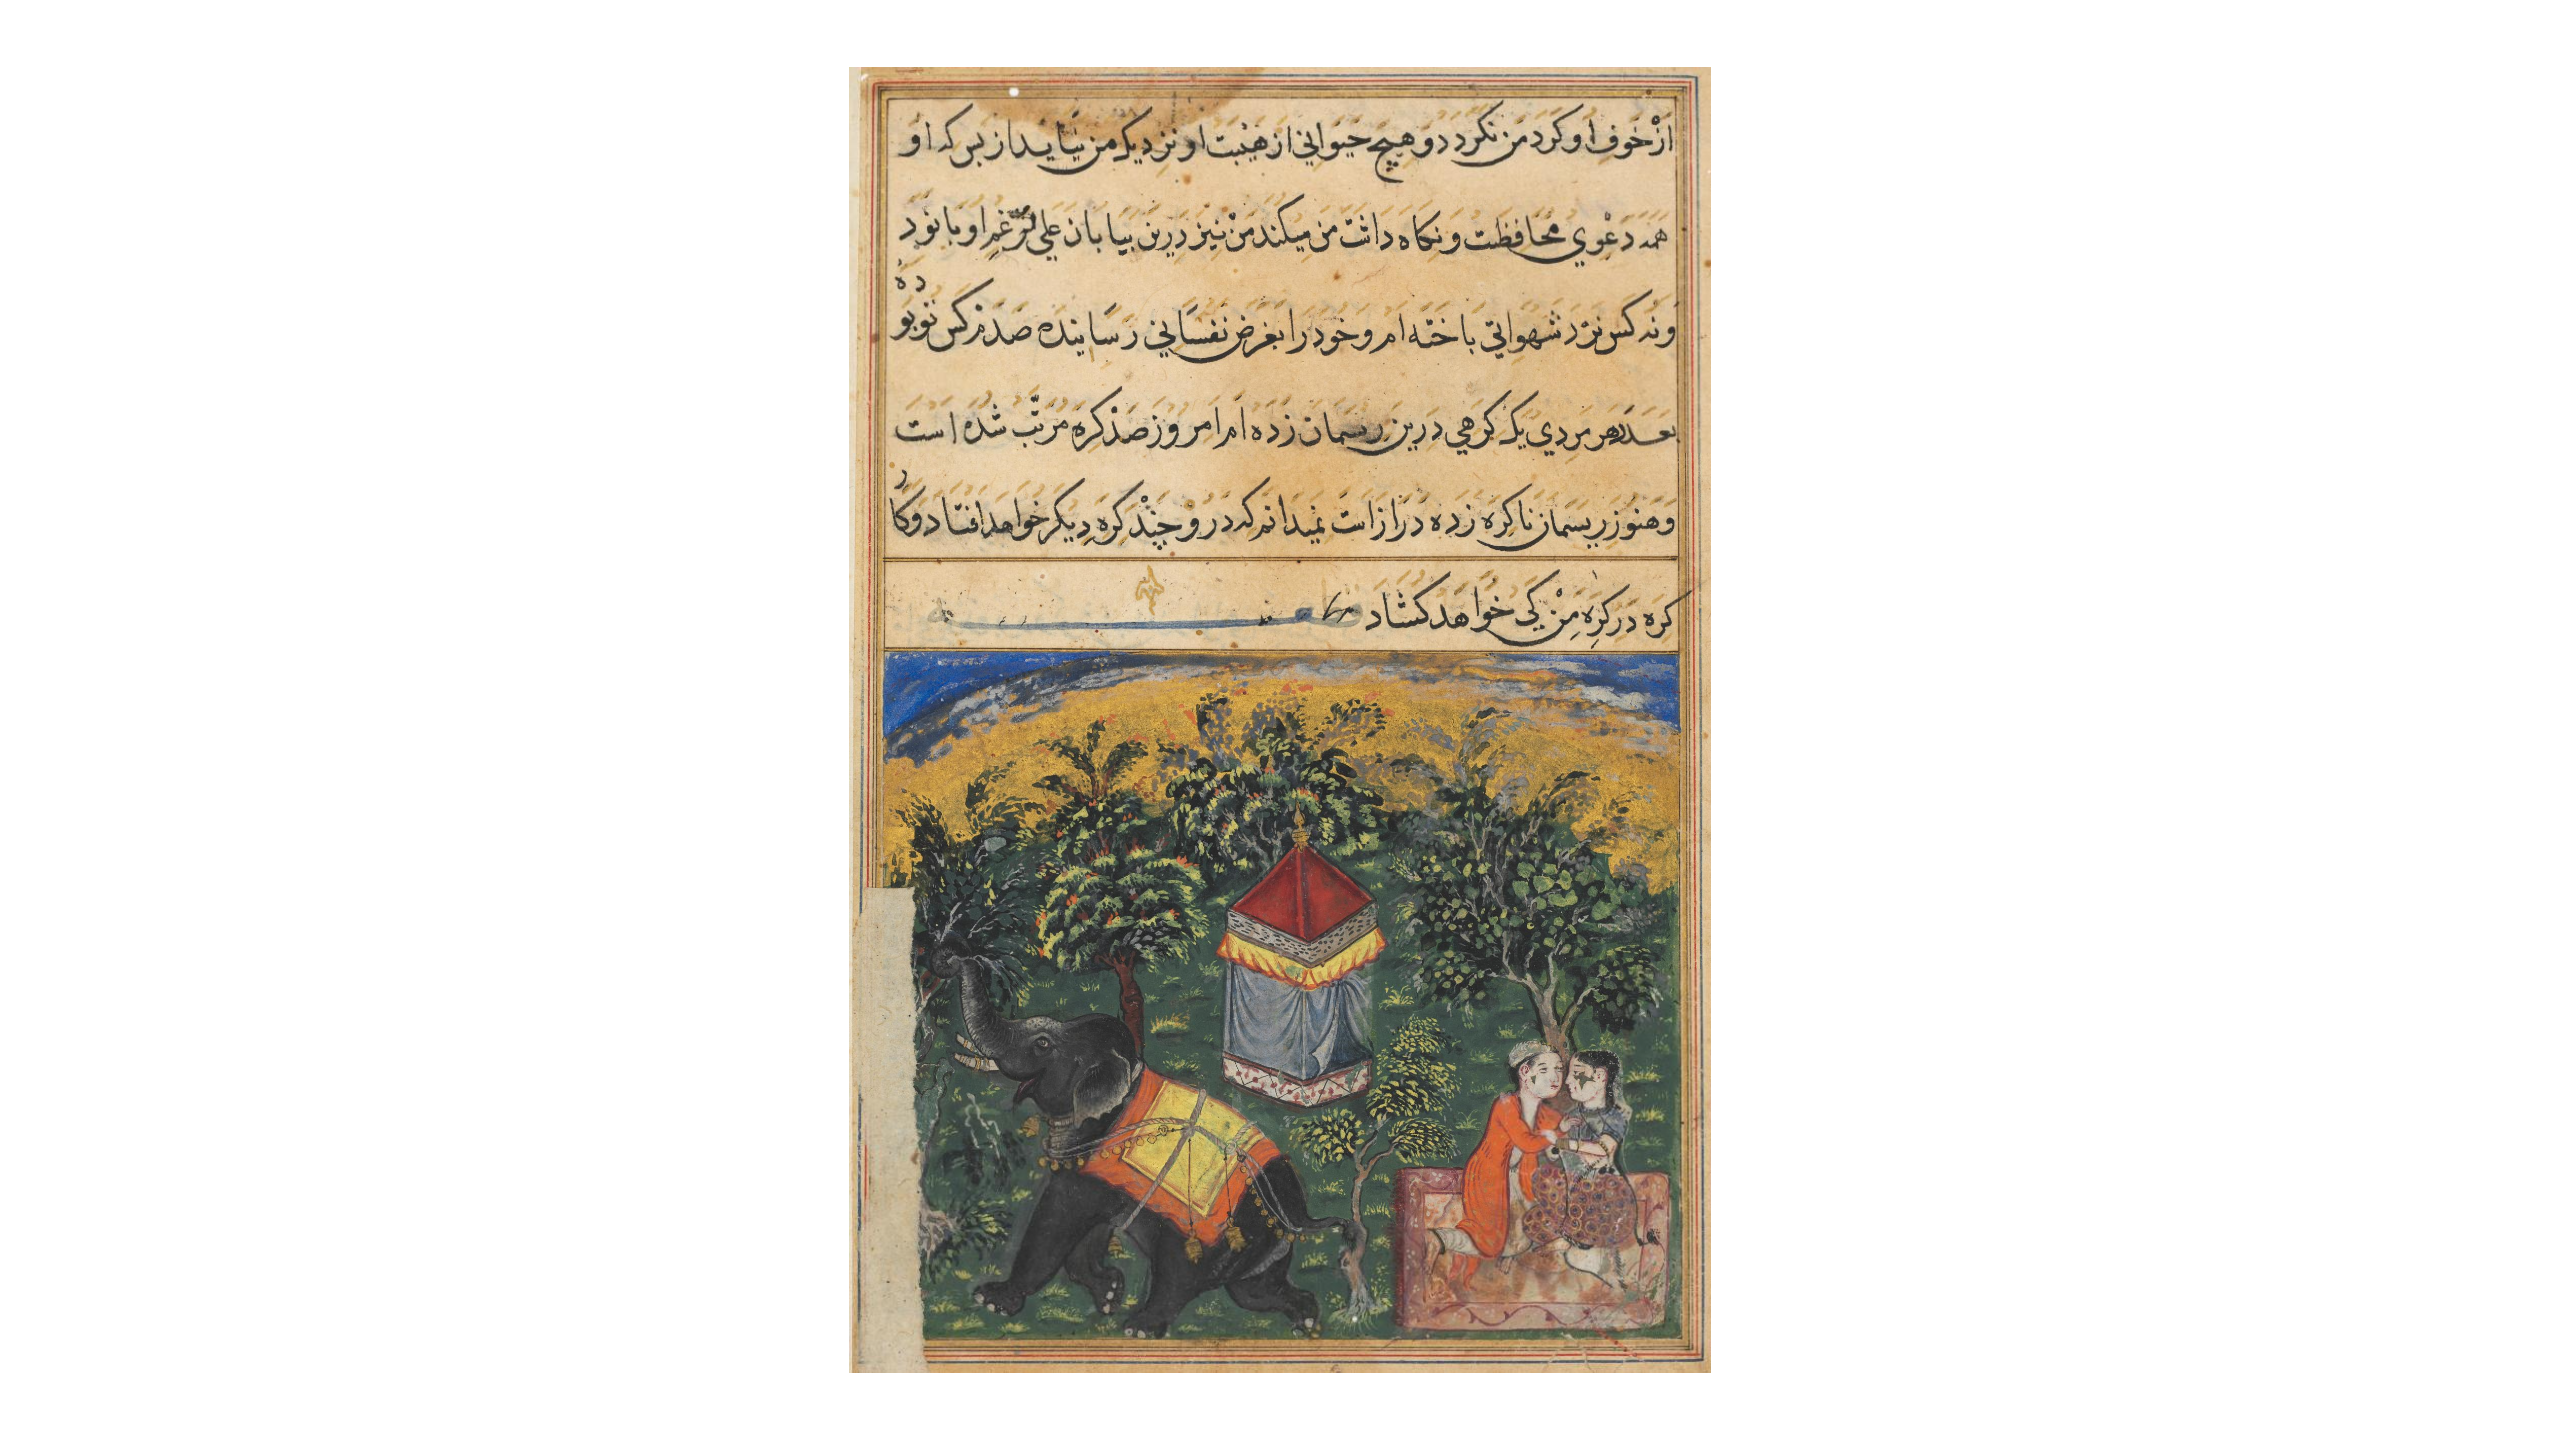 از خوف او کرد من نکردد و هیچ حیواني از هیبت او نزدیک من نیاید از بس که او
همه دعوي محافظت و نکاه داشت من میکند من نیز درین بیابان علي الرغم او با نود
و نه کس نرد شهواني باخته ام و خود را بغرض نفساني رسانیده صدم کس تو بوده
بعدد هر مردي یک کرهي درین ریسمان زده ام امروز صد کره مرتب شده است
و هنوز ریسمان ناکره زده دراز است نمیدانم که درو چند کره دیکر خواهد افتاد و کار
کره در کره من کي خواهد کشاد